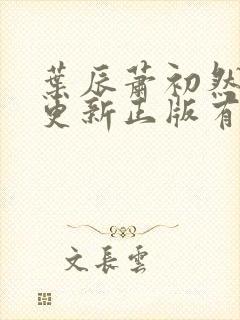 葉辰蕭初然
更新正版有
文長雲